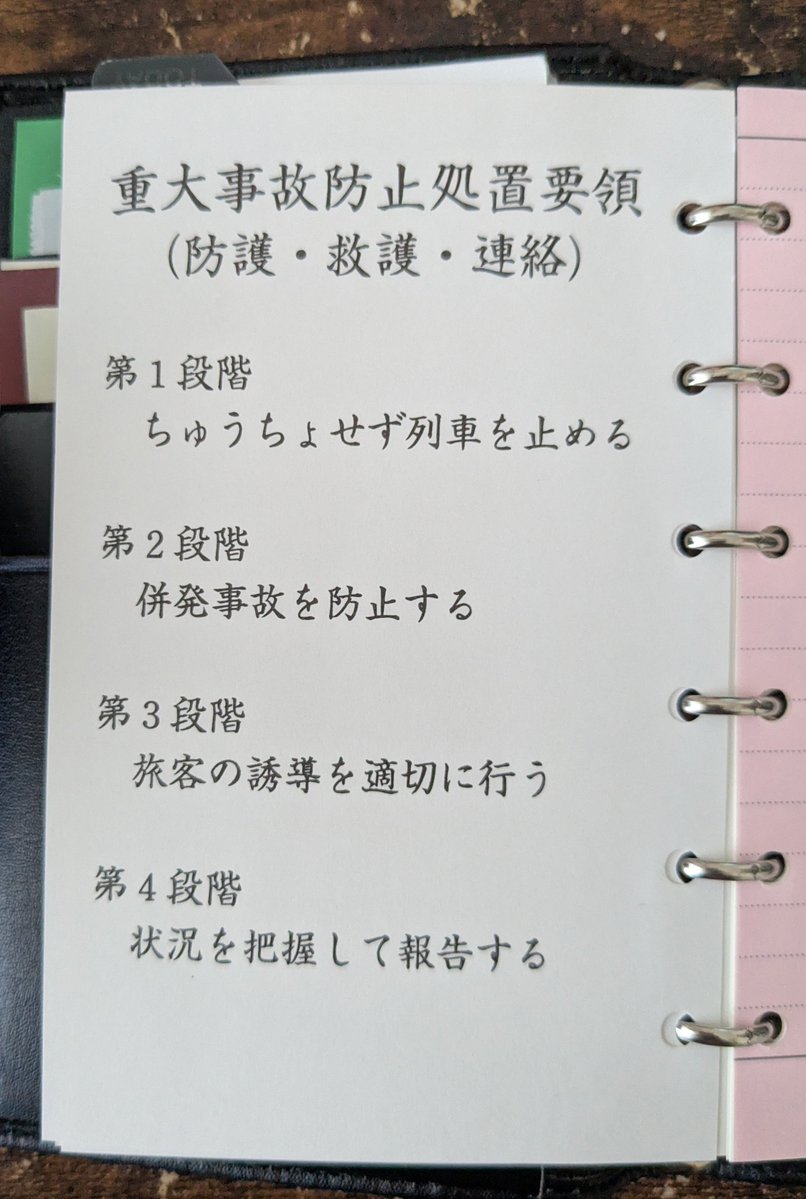 重大事故防止処置要領
(防護・救護・連絡)
第1段階
ちゅうちょせず列車を止める
第2段階
併発事故を防止する
第3段階
旅客の誘導を適切に行う
第4段階
状況を把握して報告する